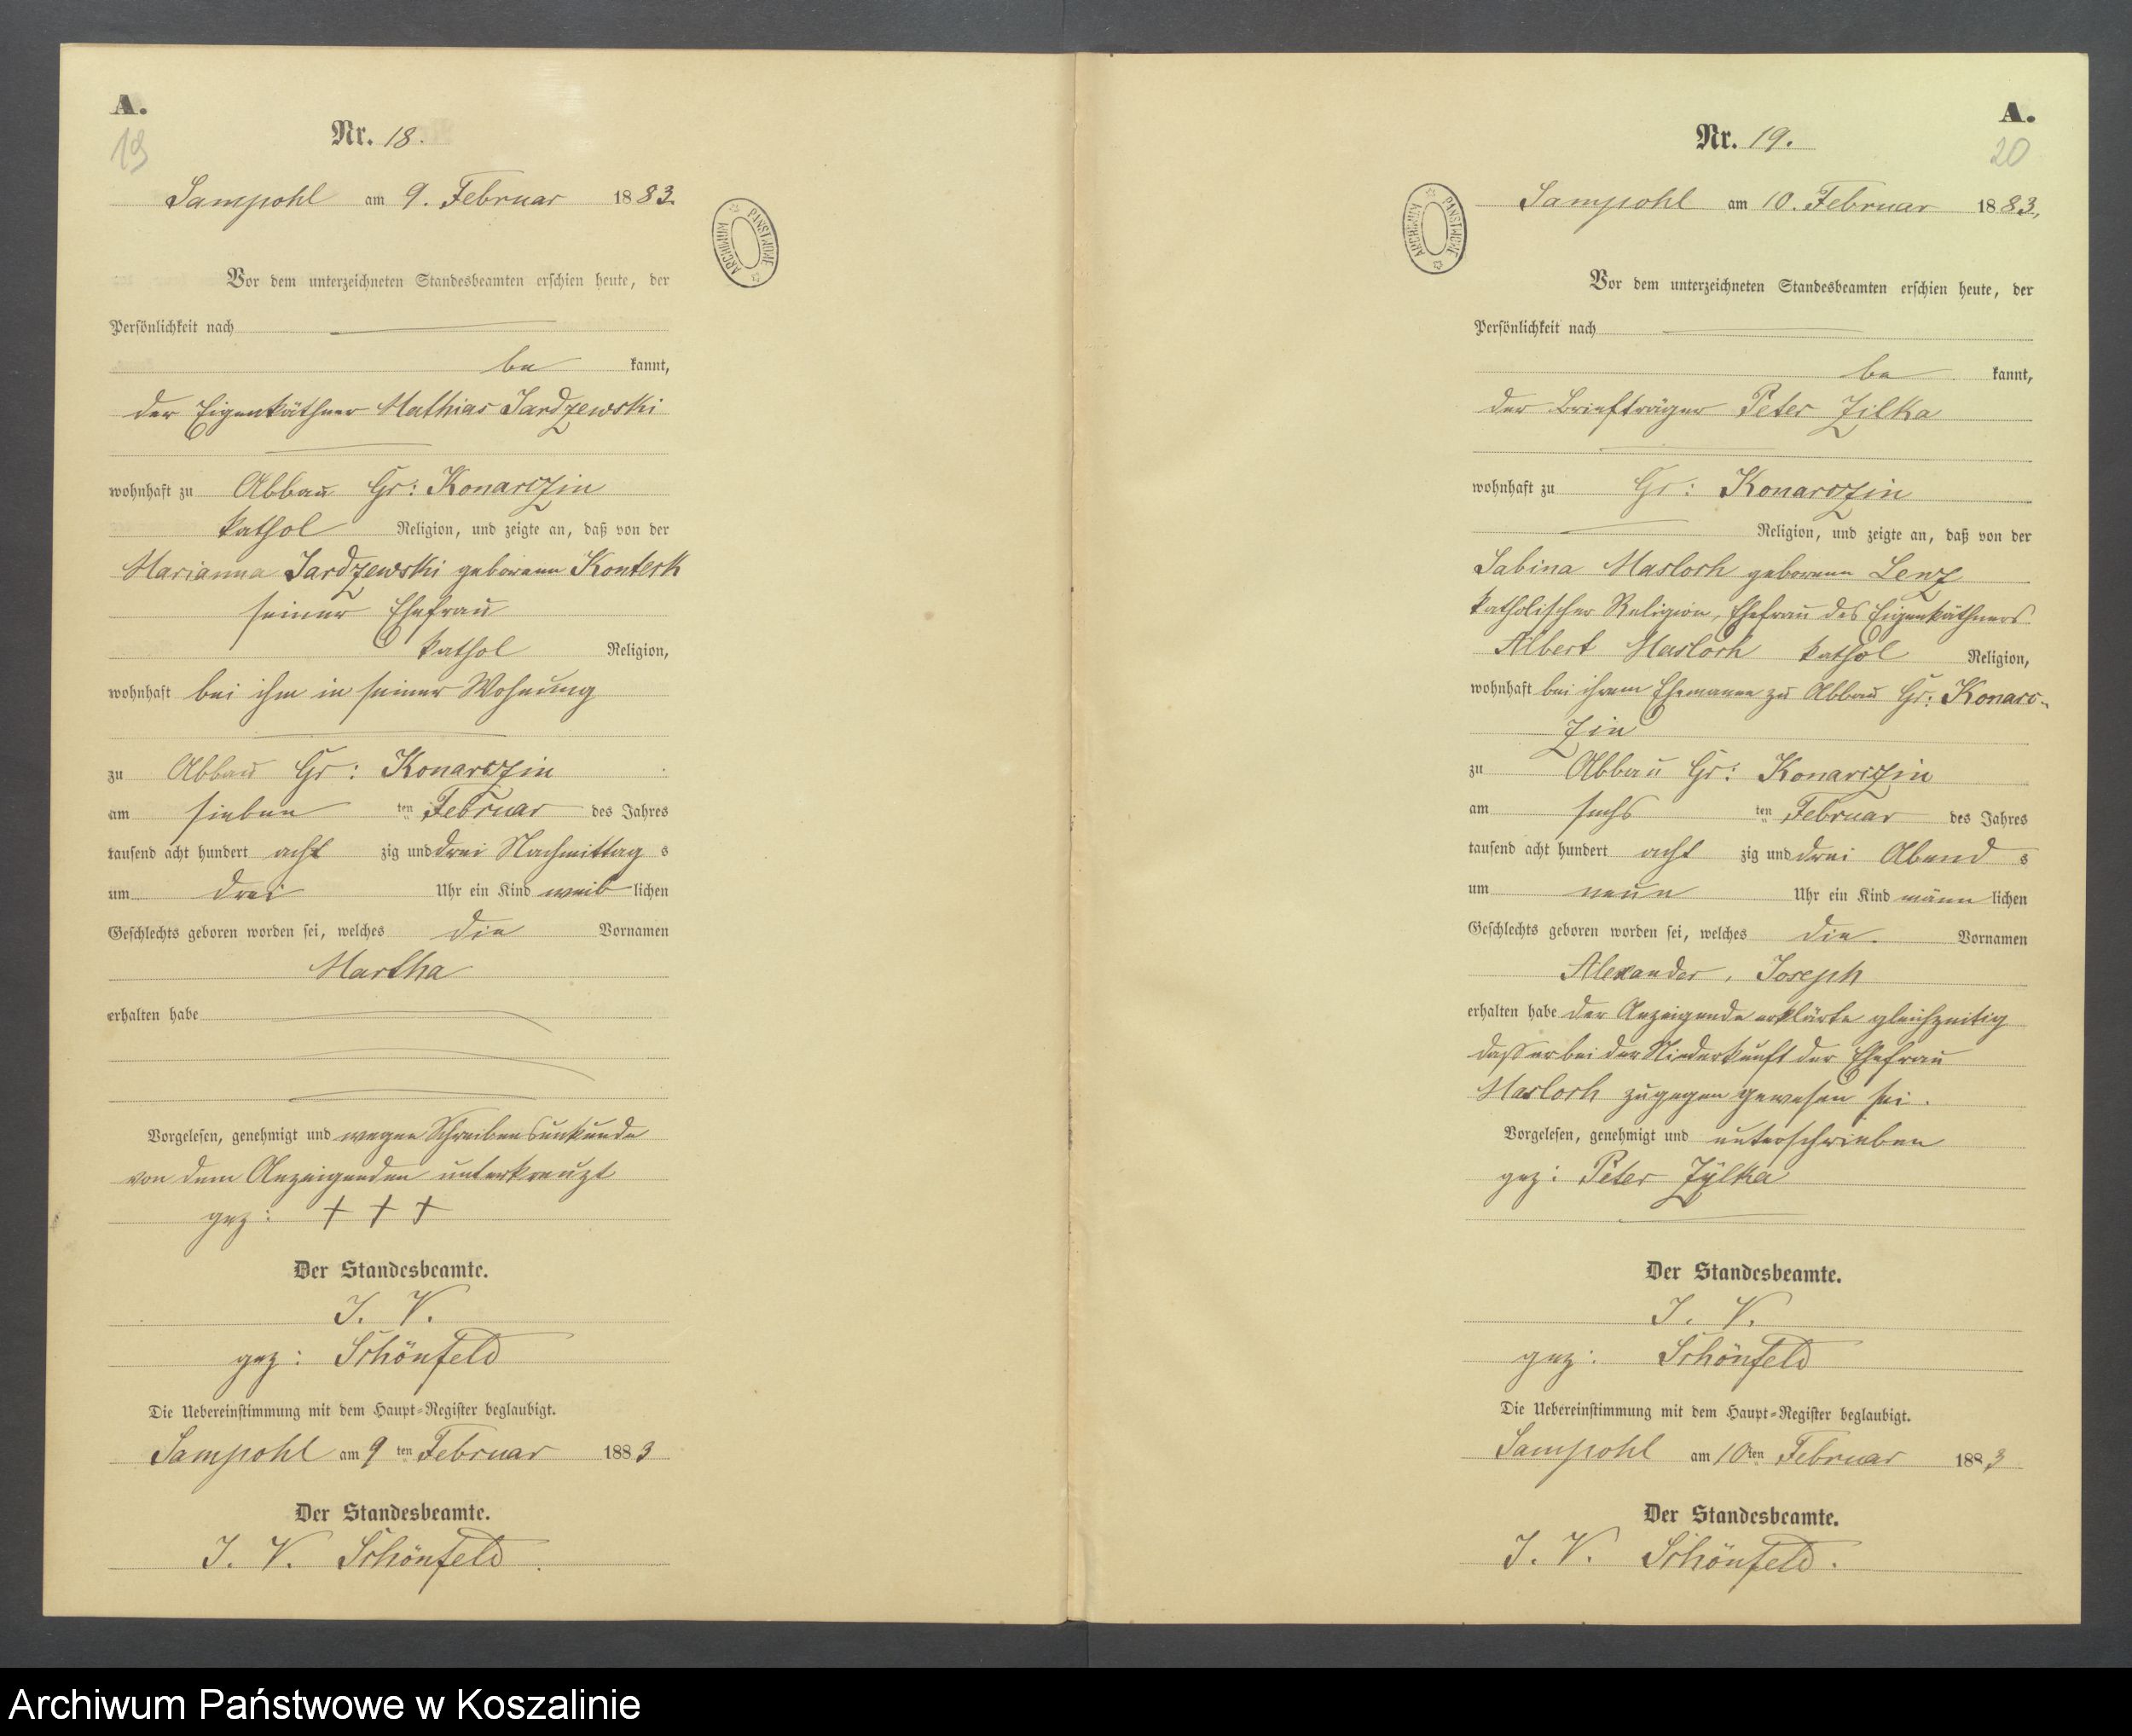 A.
19
Nr. 18.
Sampohl am 9. Februar 1883.
Vor dem unterzeichneten Standesbeamten erschien heute, der
Persönlichkeit nach
be kannt,
der Eigenkäthner Mathias Jardzewski
wohnhaft zu Abbau Gr: Konarczin
kathol Religion, und zeigte an, daß von der
Marianna Jardzewski geborenn Konterk
seiner Ehefrau
kathol Religion,
wohnhaft bei ihm in seiner Wohnung
zu Abbau Gr: Konarczin
am sieben ten Februar des Jahres
tausend acht hundert acht zig und drei Nachmittag s
um drei Uhr ein Kind weib lichen
Geschlechts geboren worden sei, welches die Vornamen
Martha
erhalten habe
Vorgelesen, genehmigt und wegen Schreibensunkunde
von dem Anzeigenden unterkreuzt
gez: + + +
Der Standesbeamte.
J. V.
gez: Schönfeld
Die Uebereinstimmung mit dem Haupt-Register beglaubigt.
Sampohl am 9 ten Februar 1883
Der Standesbeamte.
J. V. Schönfeld.
ARCHIWUM PAŃSTWOWE
A.
20
Nr. 19.
Sampohl am 10. Februar 1883.
Vor dem unterzeichneten Standesbeamten erschien heute, der
Persönlichkeit nach
be kannt,
der Briefträger Peter Zilka
wohnhaft zu Gr: Konarczin
Religion, und zeigte an, daß von der
Sabina Masloch geborenn Lenz
katholischer Religion, Ehefrau des Eigenkäthners
Albert Masloch kathol Religion,
wohnhaft bei ihrem Ehemanne zu Abbau Gr: Konarc-
zin
zu Abbau Gr: Konarczin
am sechs ten Februar des Jahres
tausend acht hundert acht zig und drei Abend s
um neun Uhr ein Kind männ lichen
Geschlechts geboren worden sei, welches die. Vornamen
Alexander, Joseph
erhalten habe der Anzeigende erklärte gleichzeitig
dass er bei der Niederkunft der Ehefrau
Masloch zugegen gewesen sei.
Vorgelesen, genehmigt und unterschrieben
gez: Peter Zÿlka
Der Standesbeamte.
J. V.
gez: Schönfeld
Die Uebereinstimmung mit dem Haupt-Register beglaubigt.
Sampohl am 10 ten Februar 1883
Der Standesbeamte.
J. V. Schönfeld.
ARCHIWUM PAŃSTWOWE
Archiwum Państwowe w Koszalinie